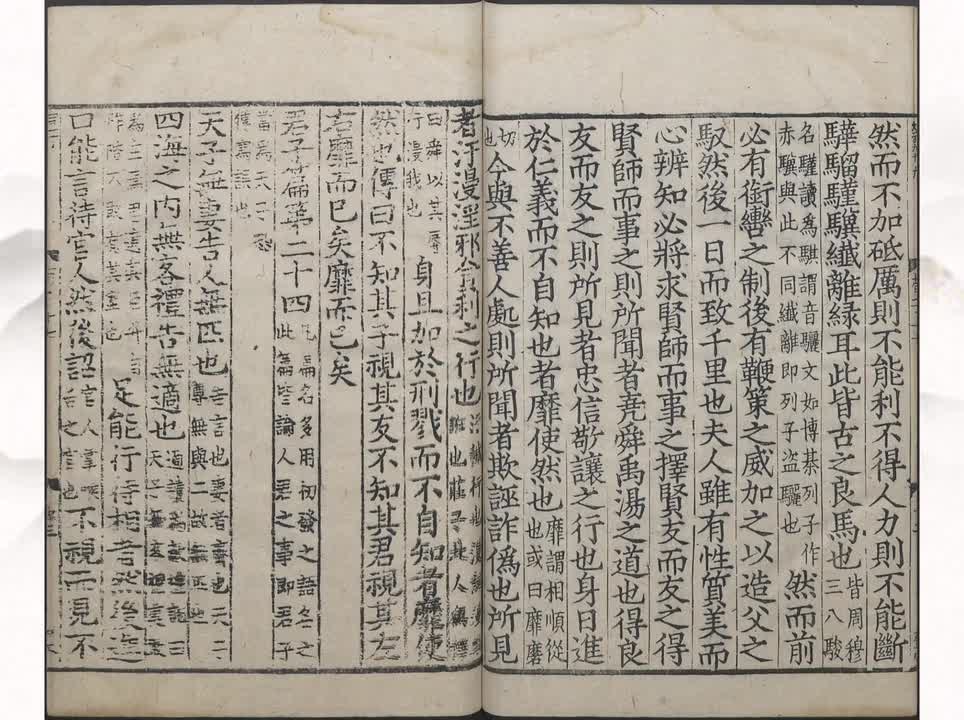 然而不加砥厲則不能利不得人力則不能斷
驊騮驥纖離綠耳此皆古之良馬也皆周穆三八駿
名讀爲騏謂音驪文如博棊列子作赤驥與此不同纖離即列子盜驪也然而前
必有銜轡之制後有鞭策之威加之以造父之
馭然後一日而致千里也夫人雖有性質美而
心辨知必將求賢師而事之擇賢友而友之得
賢師而事之則所聞者堯舜禹湯之道也得良
友而友之則所見者忠信敬讓之行也身日進
於仁義而不自知也者靡使然也靡謂相順從也或曰靡磨
切也今與不善人處則所聞者欺誣詐僞也所見
者汙漫淫邪貪利之行也
行漫我也身且加於刑戮而不自知者靡使
然也傳曰不知其子視其友不知其君視其左
右靡而已矣靡而已矣
君子篇第二十四凡篇名多用初發之語名之此篇皆論人君之事即君子
當爲天子恐傳寫誤也
天子無妻告人無匹也告言也妻者齊也天子尊無與二故無匹也
四海之內無客禮告無適也
足能行待相者然後進
口能言待官人然後詔不視而見不